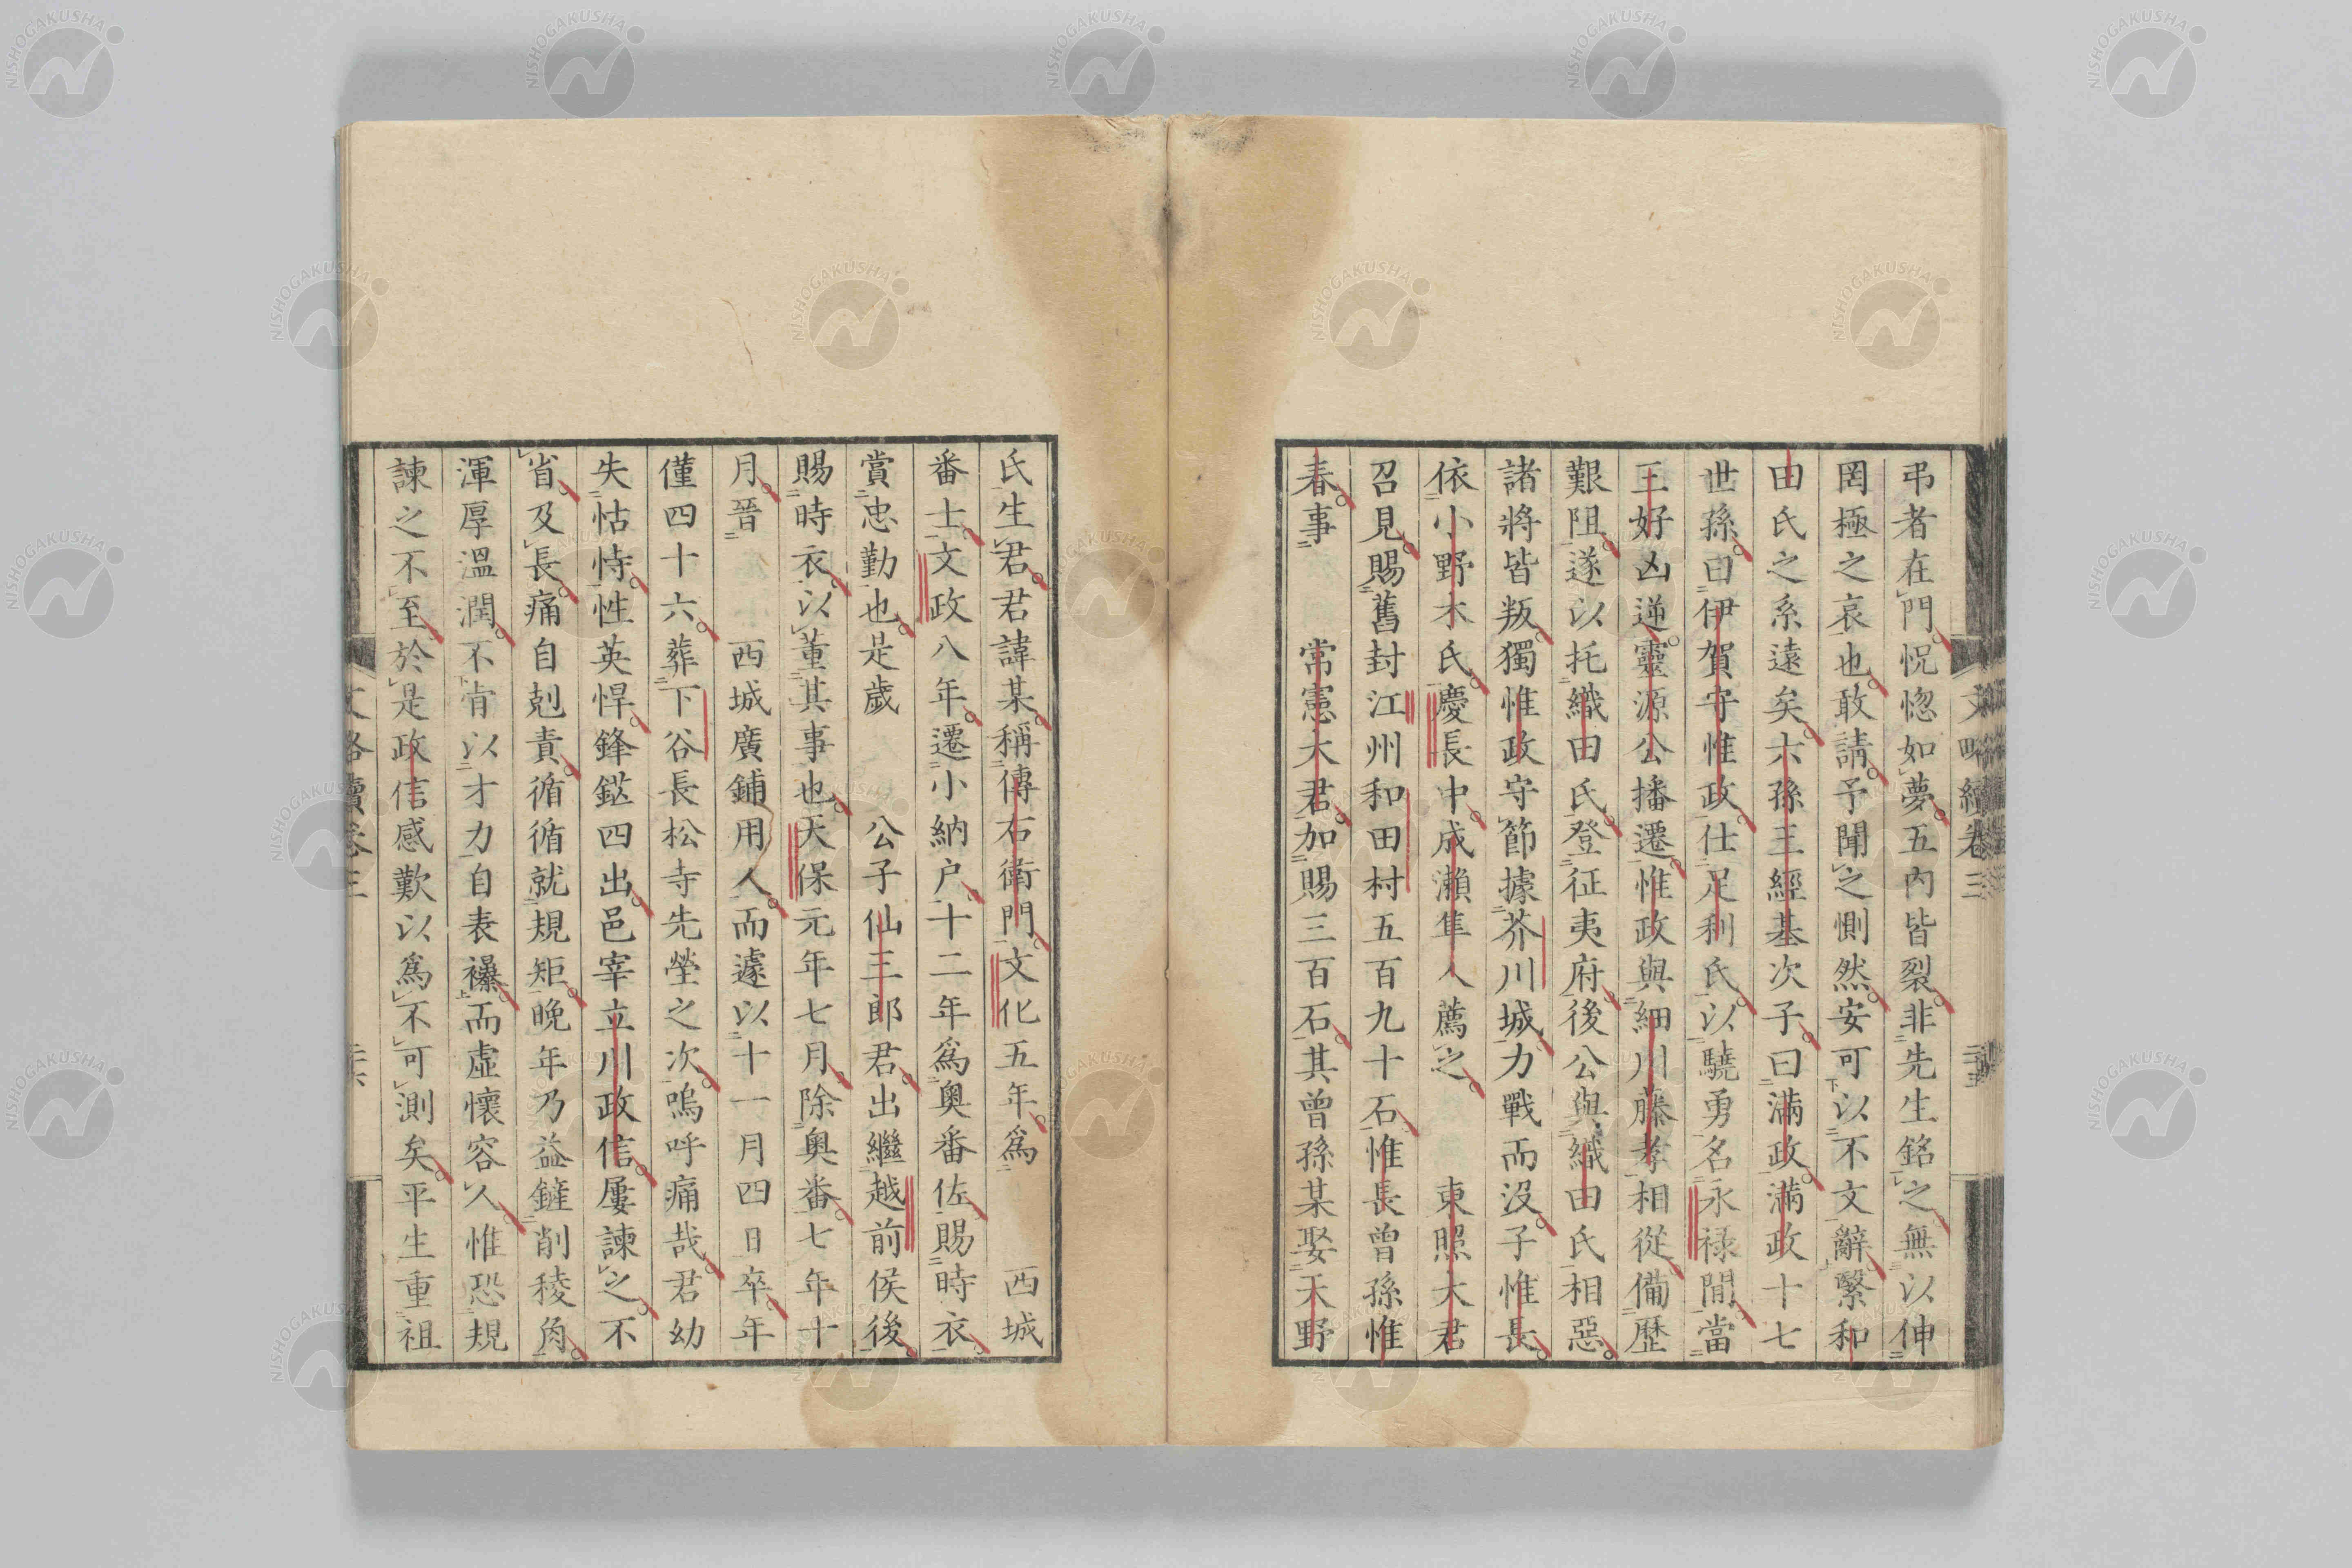 弔者在門怳惚如夢五内皆裂非先生銘之無以伸
罔極之哀也敢請予聞之惻然安可以不文辭繄和
田氏之系遠矣六孫王經基次子曰滿政滿政十七
世孫曰伊賀守惟政仕足利氏以驍勇名永禄間當
三好凶逆靈源公播遷惟政與細川藤孝相從備歷
艱阻遂以托織田氏登征夷府後公與織田氏相惡
諸將皆叛獨惟政守節據芥川城力戰而没子惟長
依小野木氏慶長中成瀨隼人薦之　東照大君
召見賜舊封江州和田村五百九十石惟長曾孫惟
春事　常憲大君加賜三百石其曾孫某娶天野
氏生君君諱某稱傳右衛門文化五年爲　西城
番士文政八年遷小納户十二年爲奥番佐賜時衣
賞忠勤也是歲　公子仙三郎君出繼越前侯後
賜時衣以董其事也天保元年七月除奥番七年十
月晉　西城廣鋪用人而遽以十一月四日卒年
僅四十六葬下谷長松寺先塋之次嗚呼痛哉君幼
失怙恃性英悍鋒鎹四出邑宰立川政信屢諫之不
省及長痛自剋責循循就規矩晚年乃益鏟削稜角
渾厚溫潤不肯以才力自表襮而虛懷容人惟恐規
諫之不至於是政信感歎以爲不可測矣平生重祖
文略續卷三
文略續卷三
NISHOGAKUSHA